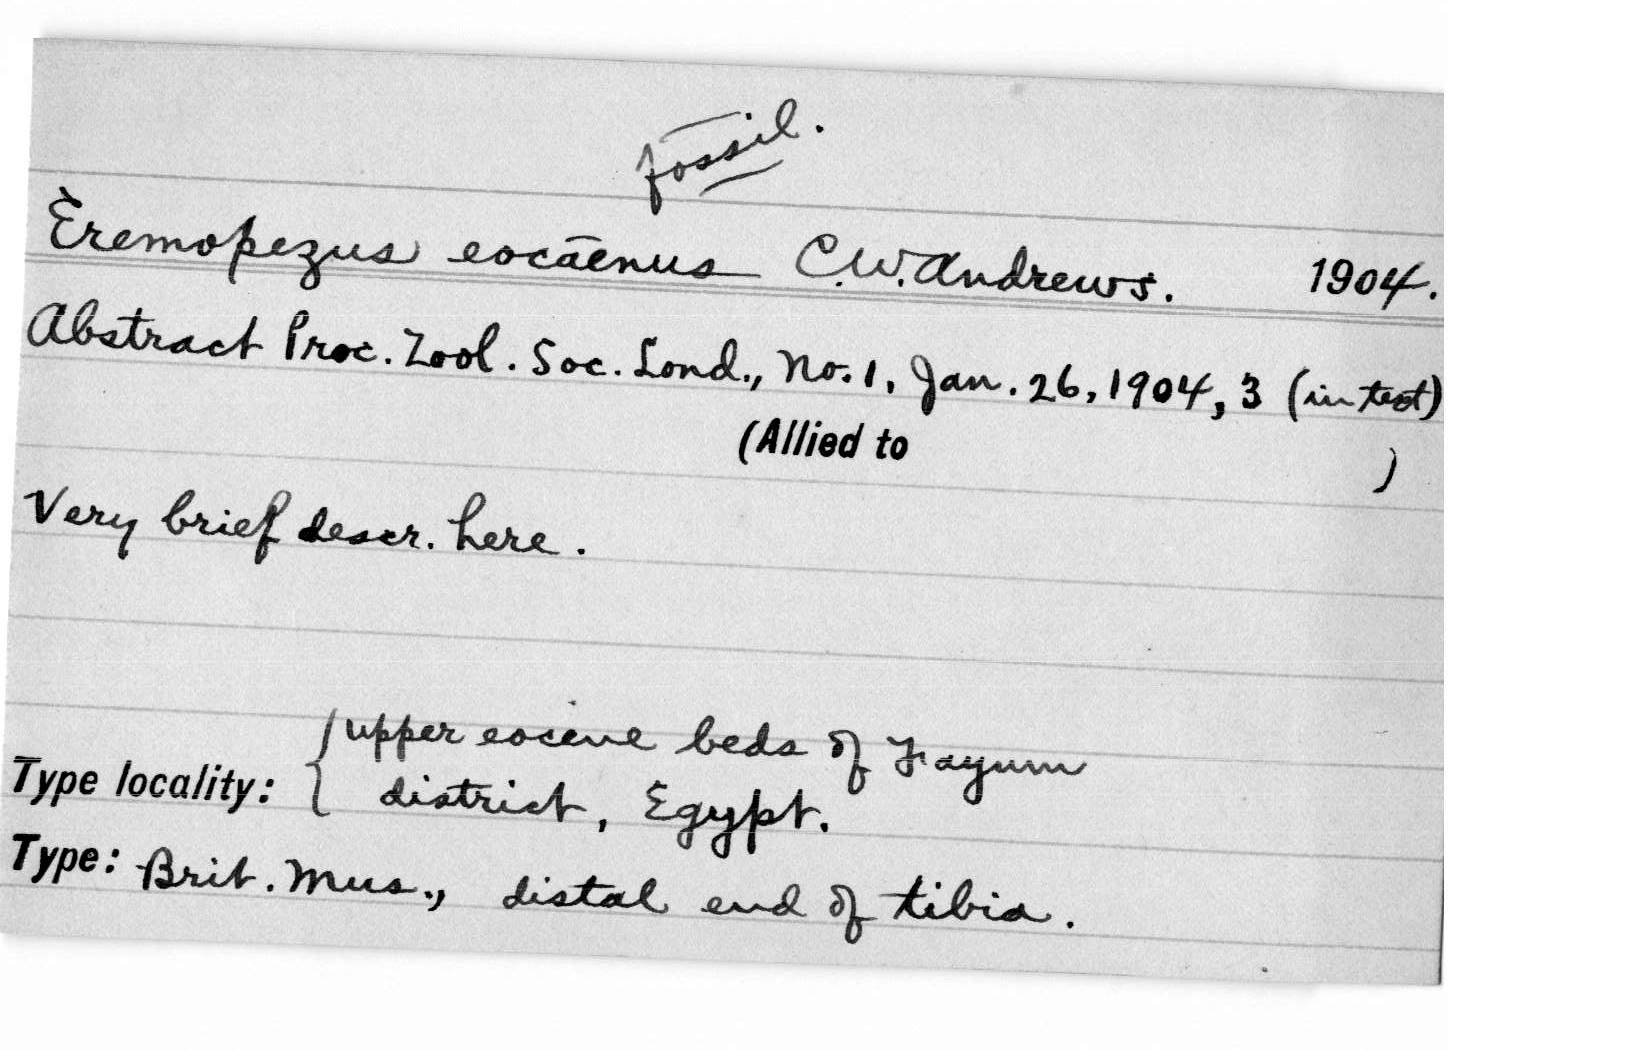 Fossil.
Eremopezus eocaenus C.W. Andrews. 1904.
Abstract Proc. Zool. Soc. Lond., No. 1, Jan. 26, 1904, 3 (in text)
(Allied to )
Very brief descr. here.
Type locality: { upper eocene beds of Fayum
district, Egypt.
Type: Brit. Mus., distal end of tibia.